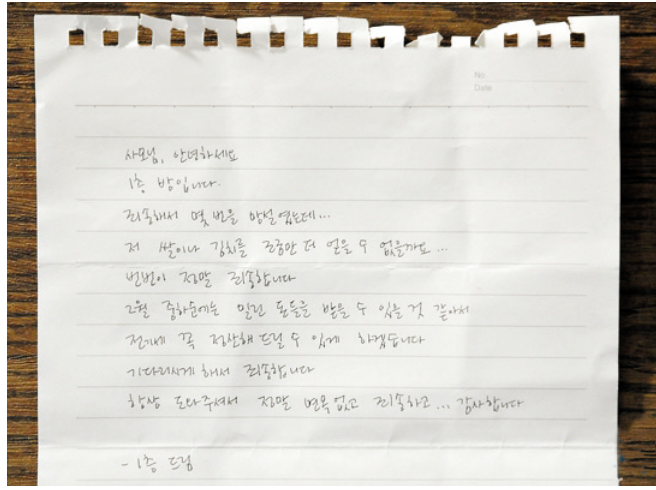 No
Date
사모님, 안녕하세요
1층 방입니다.
죄송해서 몇 번을 망설였는데...
저 쌀이나 김치를 조금만 더 얻을 수 없을까요...
번번이 정말 죄송합니다
2월 중하순에는 밀린 돈들을 받을 수 있을 것 같아서
전기세 꼭 정산해 드릴 수 있게 하겠습니다
기다리시게 해서 죄송합니다
항상 도와주셔서 정말 면목없고 죄송하고... 감사합니다
- 1층 드림